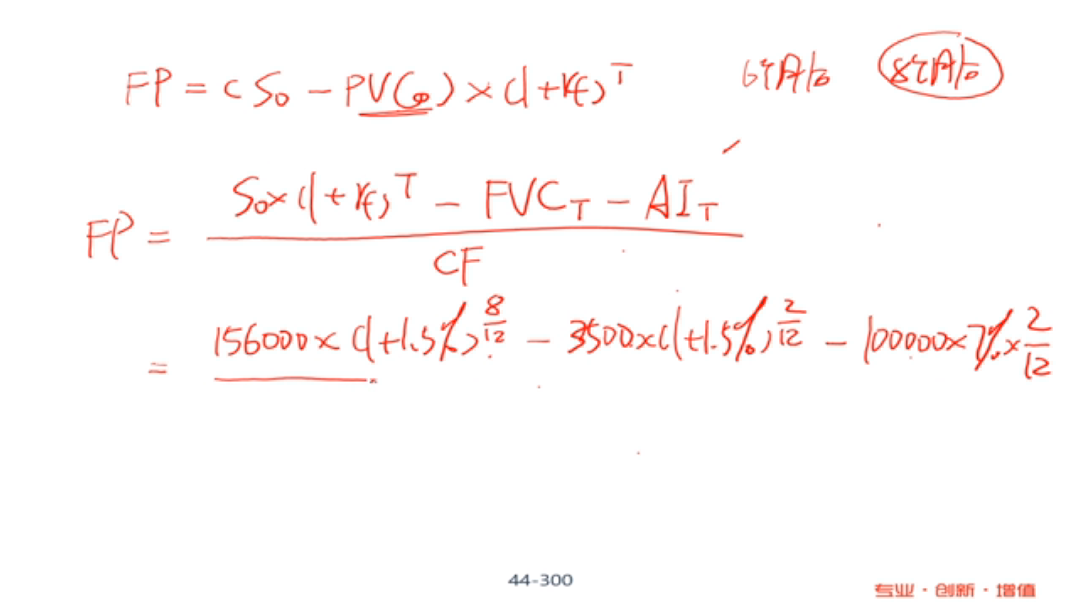 FP = (S₀ - PVC₀) × (1+rf)^T 6个月后 8个月后
FP = \frac{S₀×(1+rf)^T - FVC_T - AI_T}{CF}
= 156000×(1+1.5%)^{\frac{8}{12}} - 3500×(1+1.5%)^{\frac{2}{12}} - 100000×7%×\frac{2}{12}
44-300
专业·创新·增值